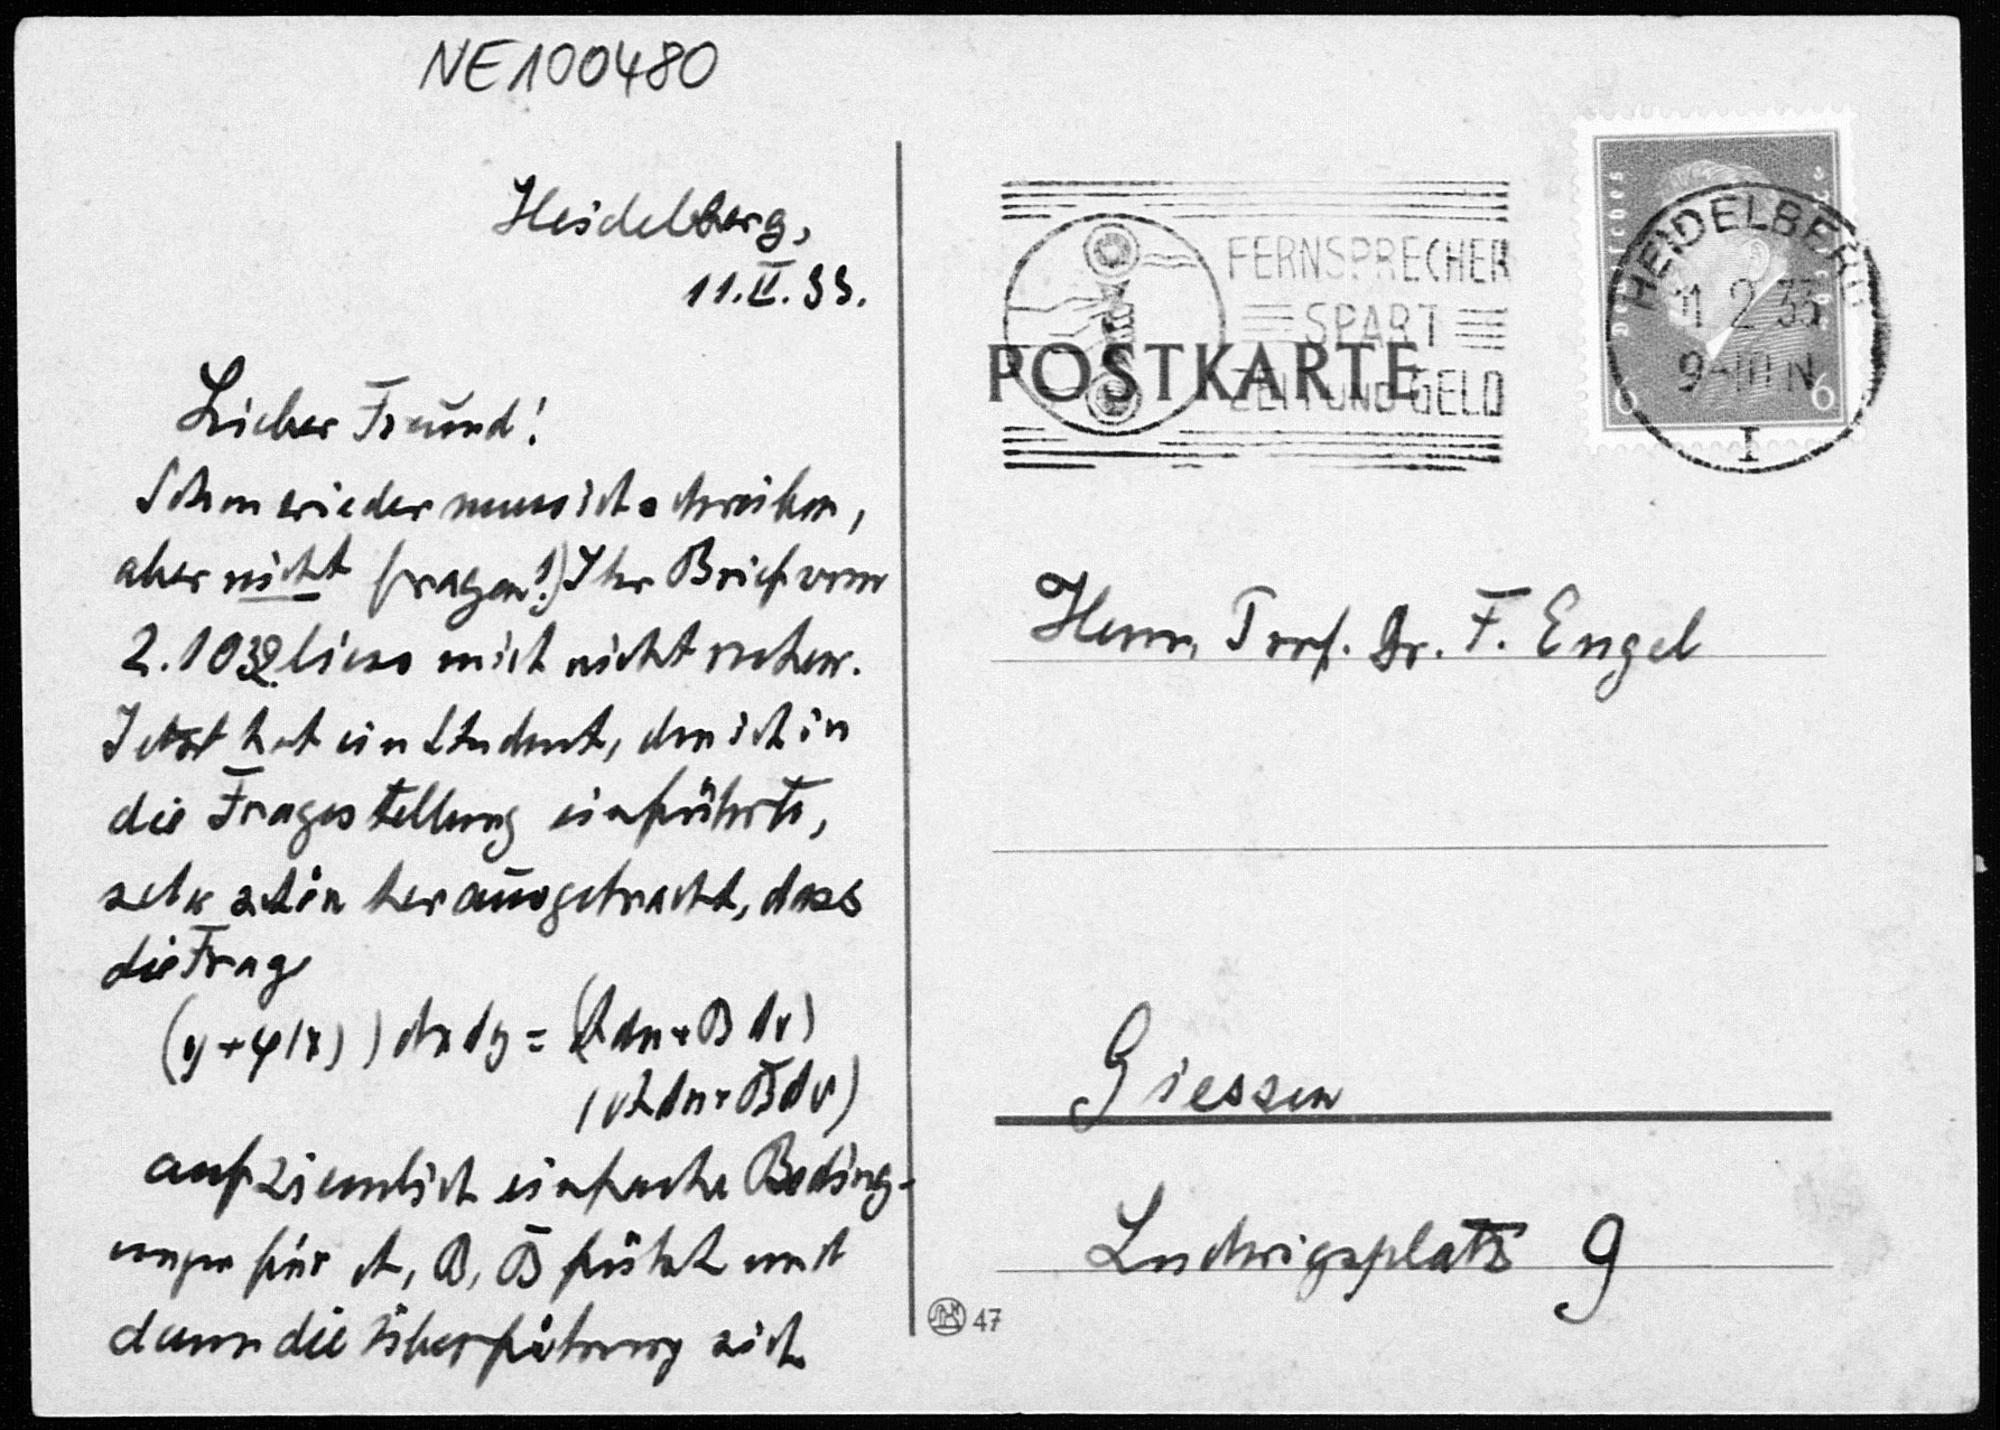 NE100480
Heidelberg,
11.II.33.
Lieber Freund!
Schon wieder muss ich schreiben,
aber nicht fragen!) Ihr Brief vom
2.10.32. liess mich nicht ruhen.
Jetzt hat ein Student, den ich in
die Fragestellung einführte,
sehr schön herausgebracht, dass
die Frage
(y+φ(x)) dx dy = (A du + B dv)
(vA du + B̄ dv)
auf ziemlich einfache Beding-
ungen für A, B, B̄ führt und
dann die Überführung sich
Deutsches Reich
6 6
HEIDELBERG
11 2 33
9-10 N
I
FERNSPRECHER
SPART
ZEIT UND GELD
POSTKARTE
Herrn Prof. Dr. F. Engel
Giessen
Ludwigsplatz 9
47